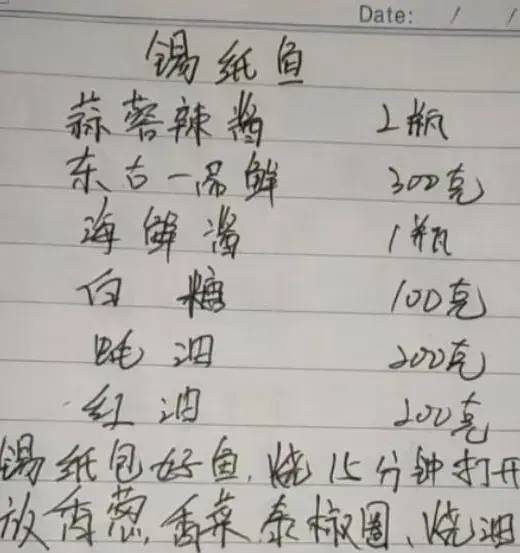 Date: / /
锡纸鱼
蒜蓉辣酱 2瓶
东古一品鲜 300克
海鲜酱 1瓶
白糖 100克
蚝油 200克
红油 200克
锡纸包好鱼,烧15分钟打开
放香葱,香菜,泰椒圈、烧油